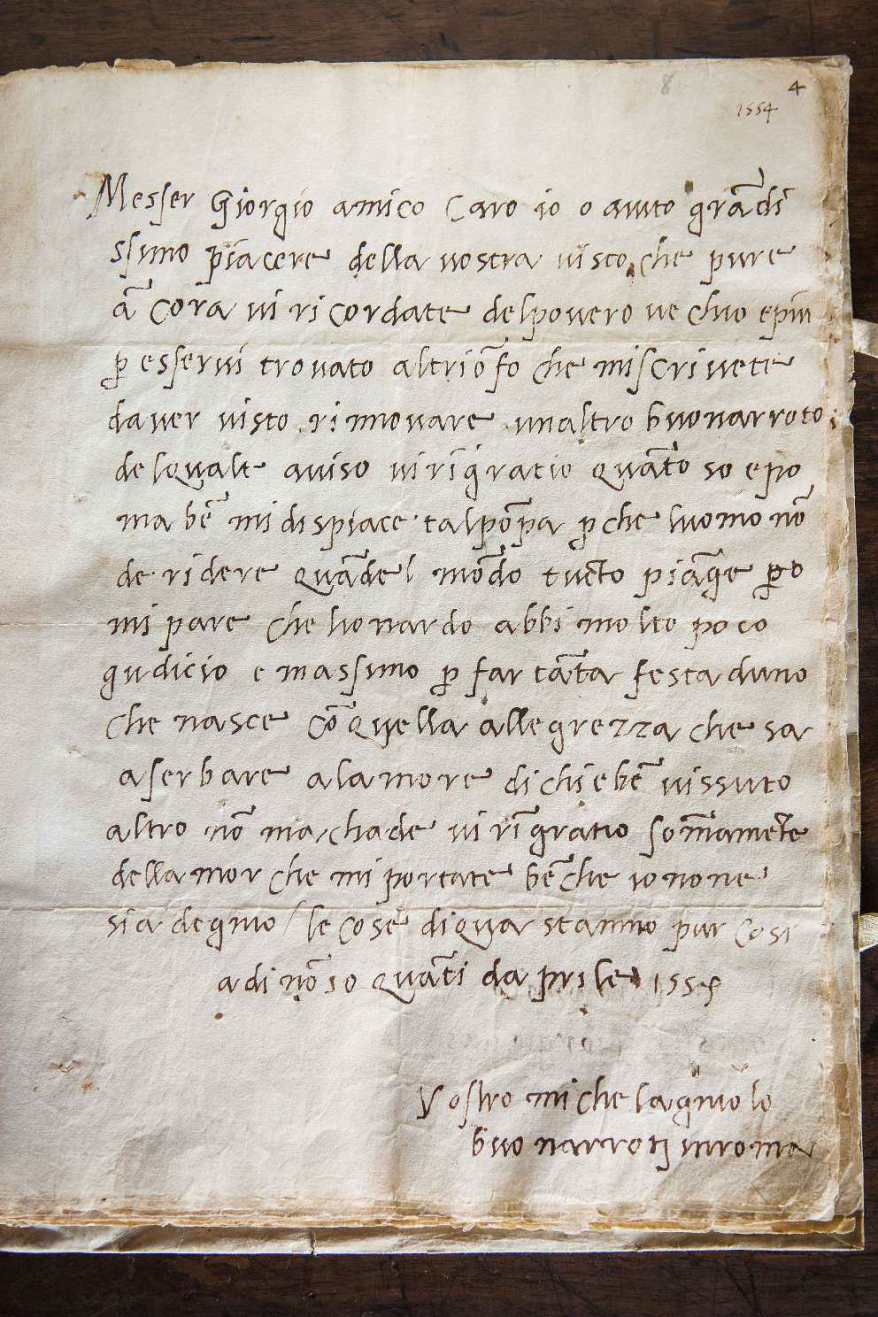 8
4
1554
Messer Giorgio amico caro io o auuto grādi
ssimo piacere della uostra uisto che pure
ā cora ui ricordate delpouero uechio epiu
p̱ esserui trouato altriōfo che miscriuete
dauer uisto rinnouare unaltro buonarroto
delquale auiso uirīgratio quāto so epo
ma bē mi dispiace talpōpa p̱che luomo nō
de ridere quādel mōdo tucto piāge p̱o
mi pare che lionardo abbi molto poco
gudicio e massimo p̱ far tāta festa duno
che nasce cō quella allegrezza che sa
aserbare alamorte dichi e bē uissuto
altro nō macchade ui rīgratio somamēte
dellamor che mi portate bēche io none
sia degnio le cose diqua stanno pur cosi
adi nō so quāti daprile 1554
Vostro michelagniolo
buonarrotj inroma